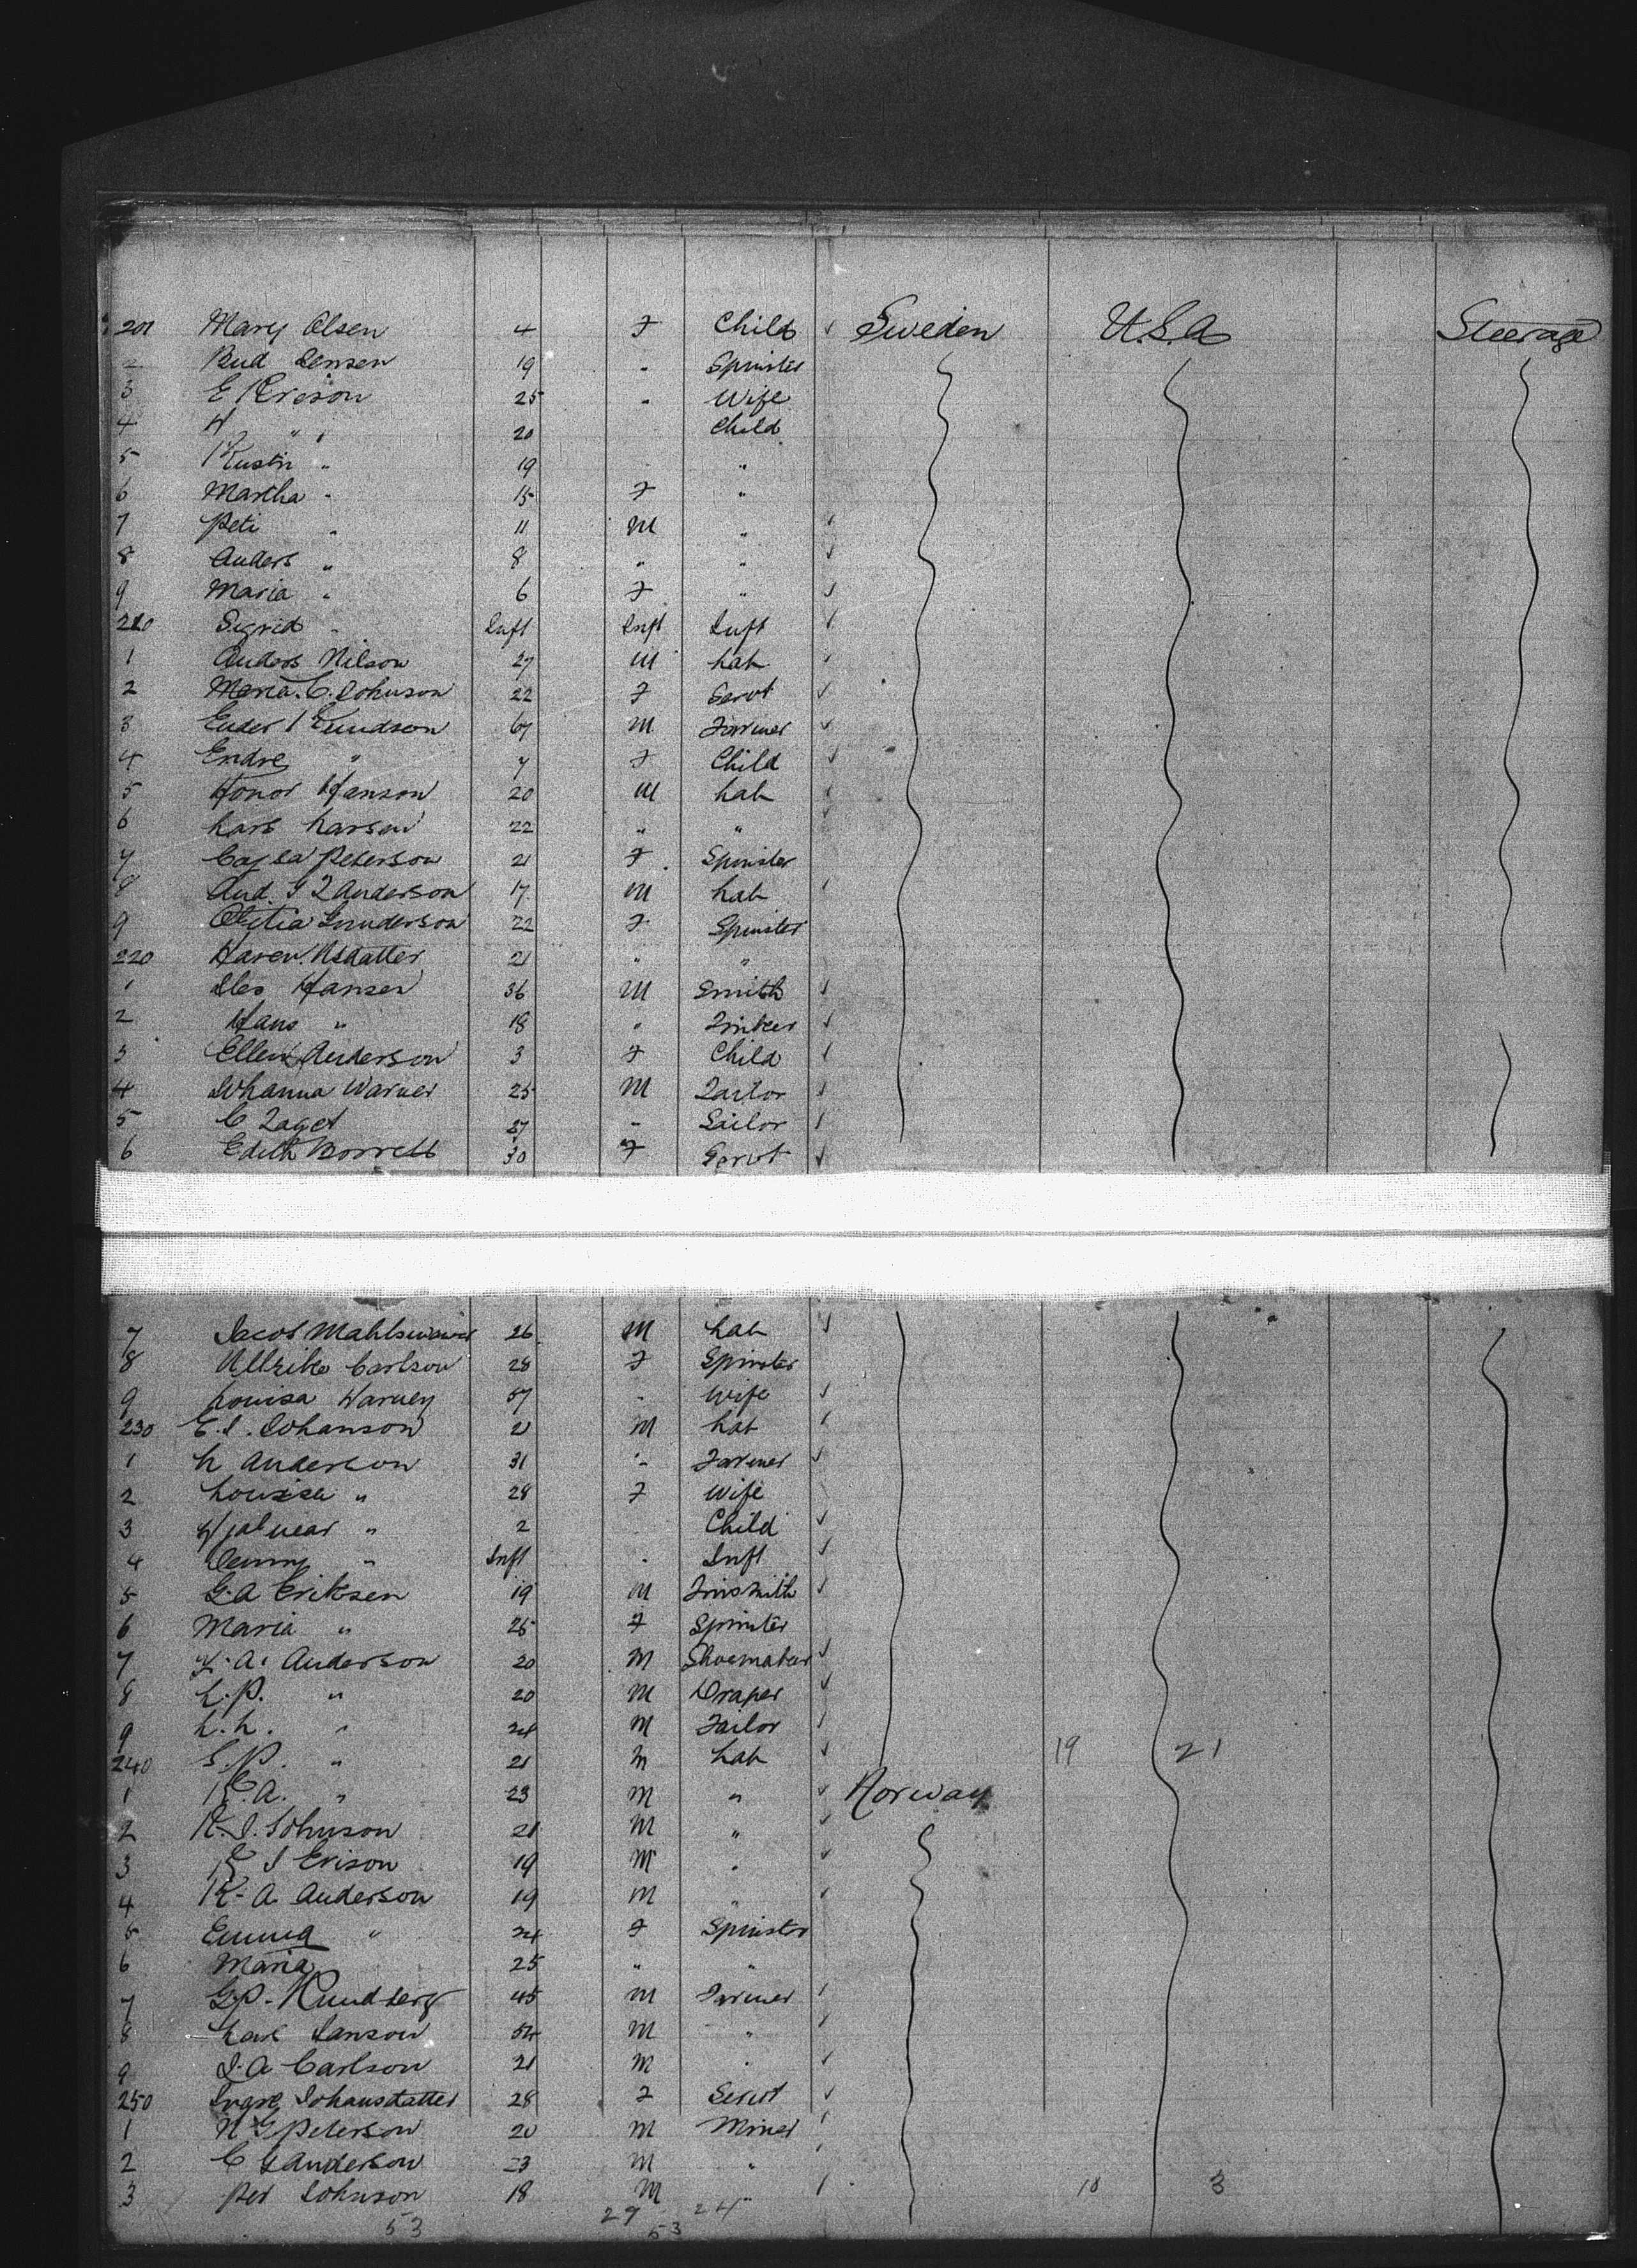 201 Mary Olsen 4 F Child ✓ Sweden U.S.A Steerage
2 Jensen 19 " Spinster
3 E Erson 25 " Wife
4 " " 20 Child
5 Kustin " 19 "
6 Martha " 15 F "
7 Peti " 11 M " ✓
8 Anders " 8 " " ✓
9 Maria " 6 F " ✓
210 Sigrid " Inft Inft Inft ✓
1 Anders Nilson 27 M Lab ✓
2 Maria C. Johnson 22 F Servt ✓
3 Ender Emudson 67 M Farmer ✓
4 Endre " 7 F Child ✓
5 Honor Hanson 20 M Lab ✓
6 Lars Larsen 22 " "
7 Cajsa Peterson 21 F Spinster
8 And. G Z Anderson 17 M Lab ✓
9 Gunderson 22 F Spinster
220 Karen 21 " "
1 Hansen 36 M Smith ✓
2 Hans " 18 " ✓
3 Ellen Anderson 3 F Child ✓
4 Johanna Warner 25 M Tailor ✓
5 C Zaget 27 " Sailor ✓
6 Edith Borrell 30 F Servt ✓
7 Jacob 26 M Lab ✓
8 Ullrike Carlson 28 F Spinster
9 Louisa Warney 57 " Wife ✓
230 E. J. Johanson 21 M Lab ✓
1 L Anderson 31 " Farmer ✓
2 Louisa " 28 F Wife
3 Hjalmar " 2 Child ✓
4 Jenny " Inft " Inft ✓
5 G. A Eriksen 19 M Tinsmith ✓
6 Maria " 25 F Spinster
7 F. A. Anderson 20 M Shoemaker ✓
8 L. P. " 20 M Draper ✓
9 L. L. " 24 M Tailor ✓
240 S. P. " 21 M Lab ✓ 19 21
1 E. A. " 23 M " ✓ Norway
2 K. J. Johnson 21 M " ✓
3 E J Erison 19 M " ✓
4 K. A. Anderson 19 M " ✓
5 Emma " 24 F Spinster
6 Maria 25 " "
7 G. P. Rundberg 45 M Farmer ✓
8 Lars Janson 54 M " ✓
9 J. A Carlson 21 M " ✓
250 Johansdatter 28 F Servt ✓
1 N G Peterson 20 M Miner ✓
2 C G Anderson 23 M " ✓
3 Per Johnson 18 M " ✓ 10 3
53 29 24
53